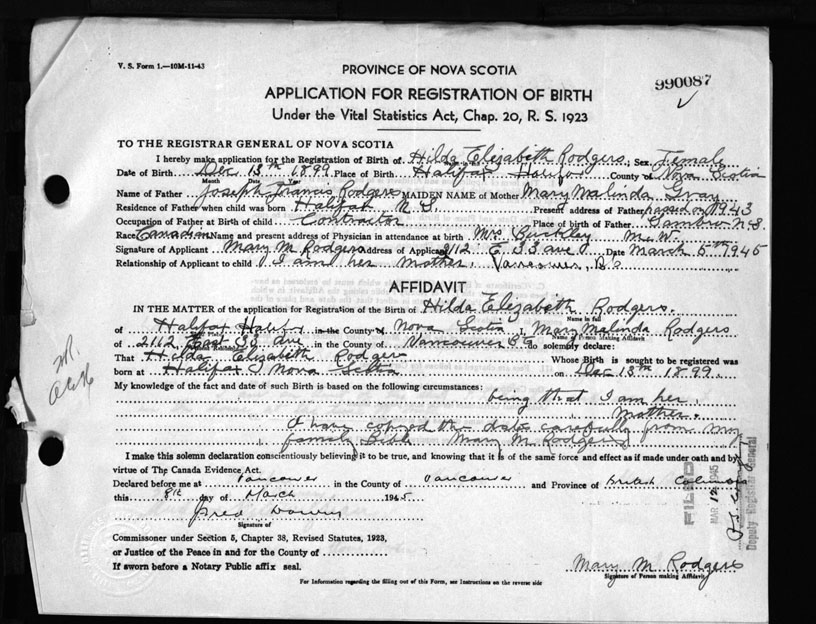 V. S. Form 1.—10M-11-43
990087
PROVINCE OF NOVA SCOTIA
APPLICATION FOR REGISTRATION OF BIRTH
Under the Vital Statistics Act, Chap. 20, R. S. 1923
TO THE REGISTRAR GENERAL OF NOVA SCOTIA
I hereby make application for the Registration of Birth of Hilda Elizabeth Rodgers Sex Female
Date of Birth Dec 13th 1899 Place of Birth Halifax Halifax County of Nova Scotia
Month Date Year
Name of Father Joseph Francis Rodgers MAIDEN NAME of Mother Mary Malinda Gray
Residence of Father when child was born Halifax N.S. Present address of Father passed on 1943
Occupation of Father at Birth of child Contractor Place of birth of Father Sambro N.S.
Race Canadian Name and present address of Physician in attendance at birth Mrs Buckley M.W.
Signature of Applicant Mary M Rodgers Address of Applicant 2112 E 33 ave Date March 5th 1945
Relationship of Applicant to child I am her mother, Vancouver, B.C
AFFIDAVIT
IN THE MATTER of the application for Registration of Birth of Hilda Elizabeth Rodgers.
Name in full
of Halifax Halifax in the County of Nova Scotia I, Mary Malinda Rodgers
Name of Person Making Affidavit
of 2112 East 33 ave in the County of Vancouver BC do solemnly declare:
That Hilda Elizabeth Rodgers Whose Birth is sought to be registered was
born at Halifax Nova Scotia on Dec 13th 1899.
My knowledge of the fact and date of such Birth is based on the following circumstances:
being that I am her
Mother.
I have copied the date carefully from my
family Bible Mary M Rodgers
I make this solemn declaration conscientiously believing it to be true, and knowing that it is of the same force and effect as if made under oath and by
virtue of The Canada Evidence Act.
Declared before me at Vancouver in the County of Vancouver and Province of British Columbia
this 8th day of March 1945
Signature of
Commissioner under Section 5, Chapter 38, Revised Statutes, 1923,
or Justice of the Peace in and for the County of
If sworn before a Notary Public affix seal.
Mary M Rodgers
Signature of Person making Affidavit
For Information regarding the filling out of this Form, see Instructions on the reverse side
FILED
MAR 12 1945
Deputy Registrar General